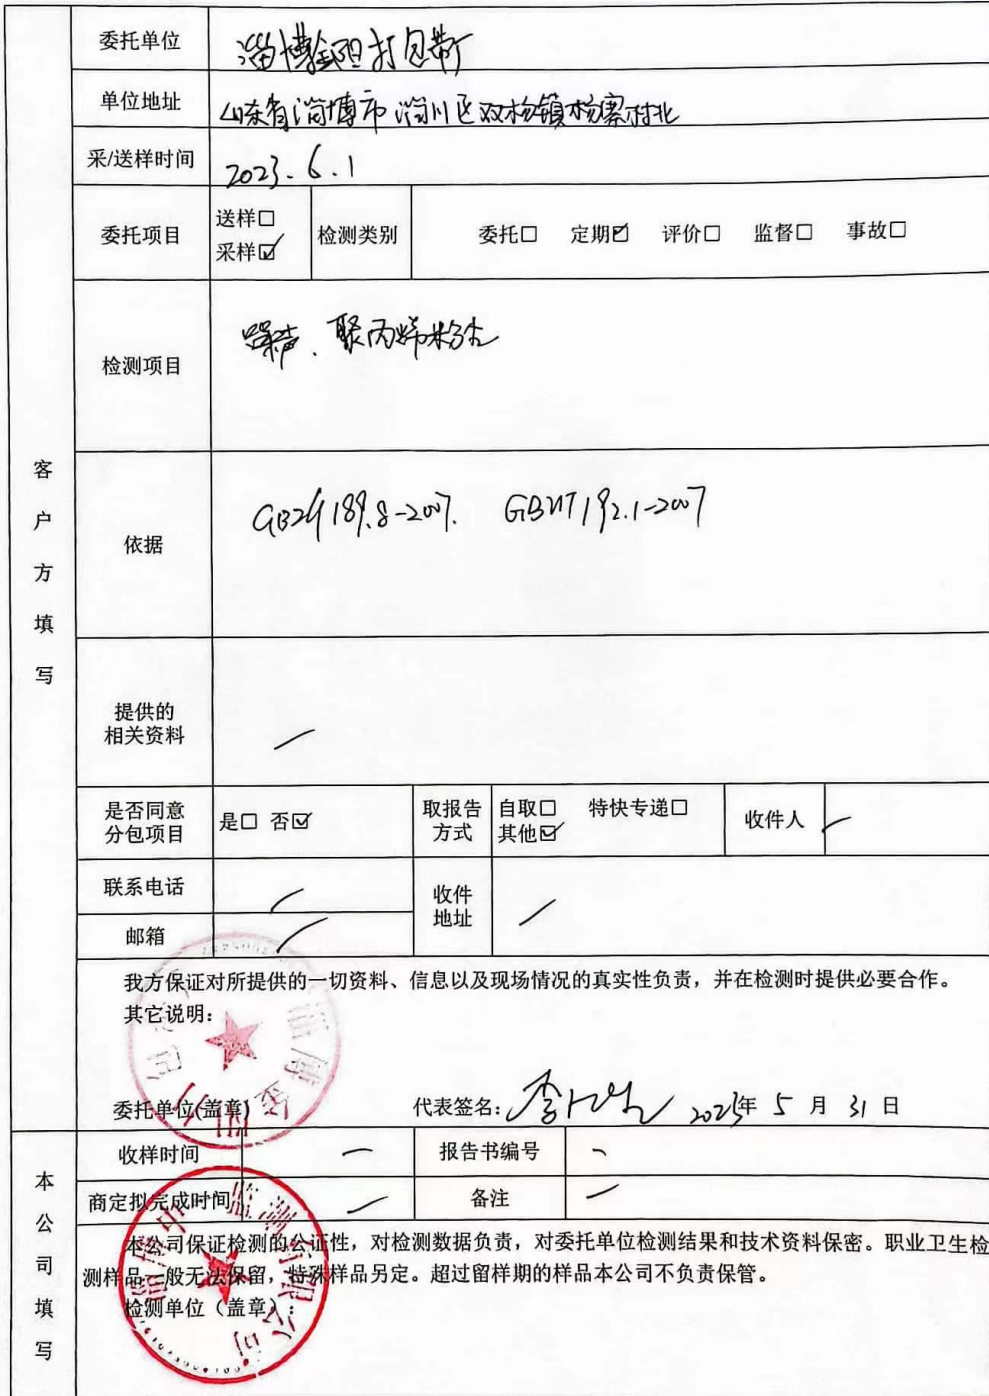 委托单位 淄博金阳打包带厂
单位地址 山东省淄博市淄川区双杨镇杨寨村北
采/送样时间 2023.6.1
委托项目 送样□ 采样☑ 检测类别 委托□ 定期☑ 评价□ 监督□ 事故□
检测项目 噪声、聚丙烯粉尘
客户方填写
依据 GBZ/T189.8-2007. GBZ/T192.1-2007
提供的
相关资料 /
是否同意
分包项目 是□ 否☑ 取报告
方式 自取□ 特快专递□
其他☑ 收件人 /
联系电话 / 收件
地址 /
邮箱 /
我方保证对所提供的一切资料、信息以及现场情况的真实性负责，并在检测时提供必要合作。
其它说明：
委托单位(盖章) 代表签名： 2023年 5 月 31 日
本公司填写
收样时间 — 报告书编号 -
商定拟完成时间 / 备注 /
本公司保证检测的公证性，对检测数据负责，对委托单位检测结果和技术资料保密。职业卫生检
测样品一般无法保留，特殊样品另定。超过留样期的样品本公司不负责保管。
检测单位（盖章）：